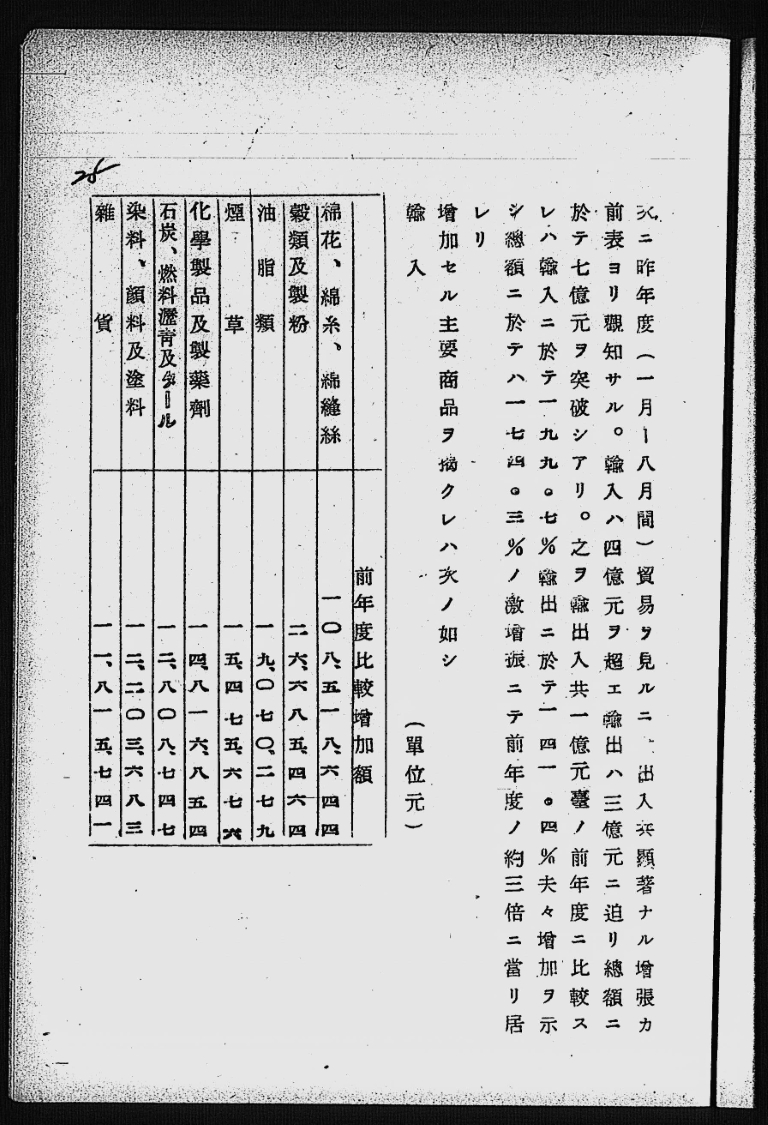 28
次ニ昨年度（一月ー八月間）貿易ヲ見ルニ、出入共顯著ナル增張カ
前表ヨリ觀知サル。輸入ハ四億元ヲ超エ輸出ハ三億元ニ迫リ總額ニ
於テ七億元ヲ突破シアリ。之ヲ輸出入共一億元臺ノ前年度ニ比較ス
レハ輸入ニ於テ一九九。七％輸出ニ於テ一四一。四％夫々增加ヲ示
シ總額ニ於テハ一七四。三％ノ激增振ニテ前年度ノ約三倍ニ當リ居
レリ
增加セル主要商品ヲ揭クレハ次ノ如シ
輸入　（單位元）
前年度比較增加額
棉花、綿糸、綿縫絲　一〇八、五一八、六四四
穀類及製粉　二六、六八五、四六四
油脂類　一九、〇七〇、二七九
煙草　一五、四七五、六七六
化學製品及製藥劑　一四、八一六、八五四
石炭、燃料瀝靑及タール　一二、八〇八、七四七
染料、顏料及塗料　一二、二〇三、六八三
雜貨　一一、八一五、七四一